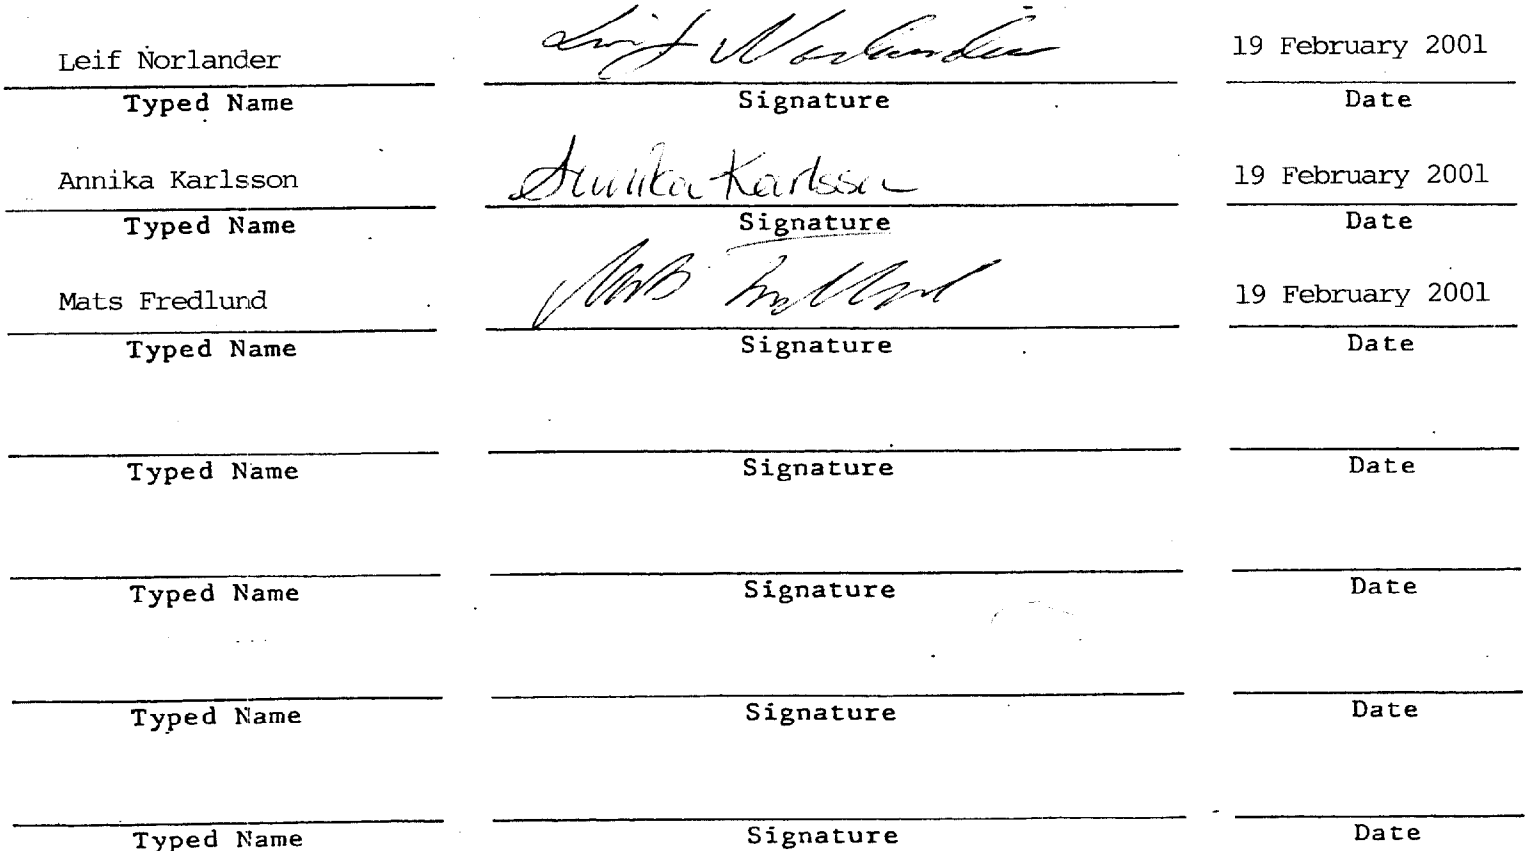 Leif Norlander Leif Norlander 19 February 2001
Typed Name Signature Date
Annika Karlsson Annika Karlsson 19 February 2001
Typed Name Signature Date
Mats Fredlund Mats Fredlund 19 February 2001
Typed Name Signature Date
Typed Name Signature Date
Typed Name Signature Date
Typed Name Signature Date
Typed Name Signature Date